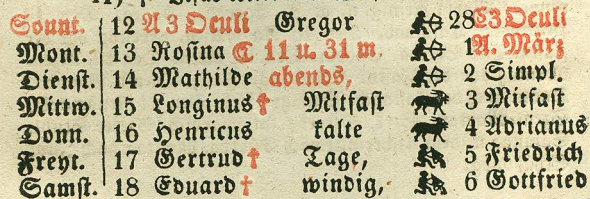 Sonnt. 12 A 3 Oculi Gregor 28 C3 Oculi
Mont. 13 Rosina C 11 u. 31 m. 1 A. März
Dienst. 14 Mathilde abends, 2 Simpl.
Mittw. 15 Longinus † Mitfast 3 Mitfast
Donn. 16 Henricus kalte 4 Adrianus
Freyt. 17 Gertrud † Tage, 5 Friedrich
Samst. 18 Eduard † windig, 6 Gottfried